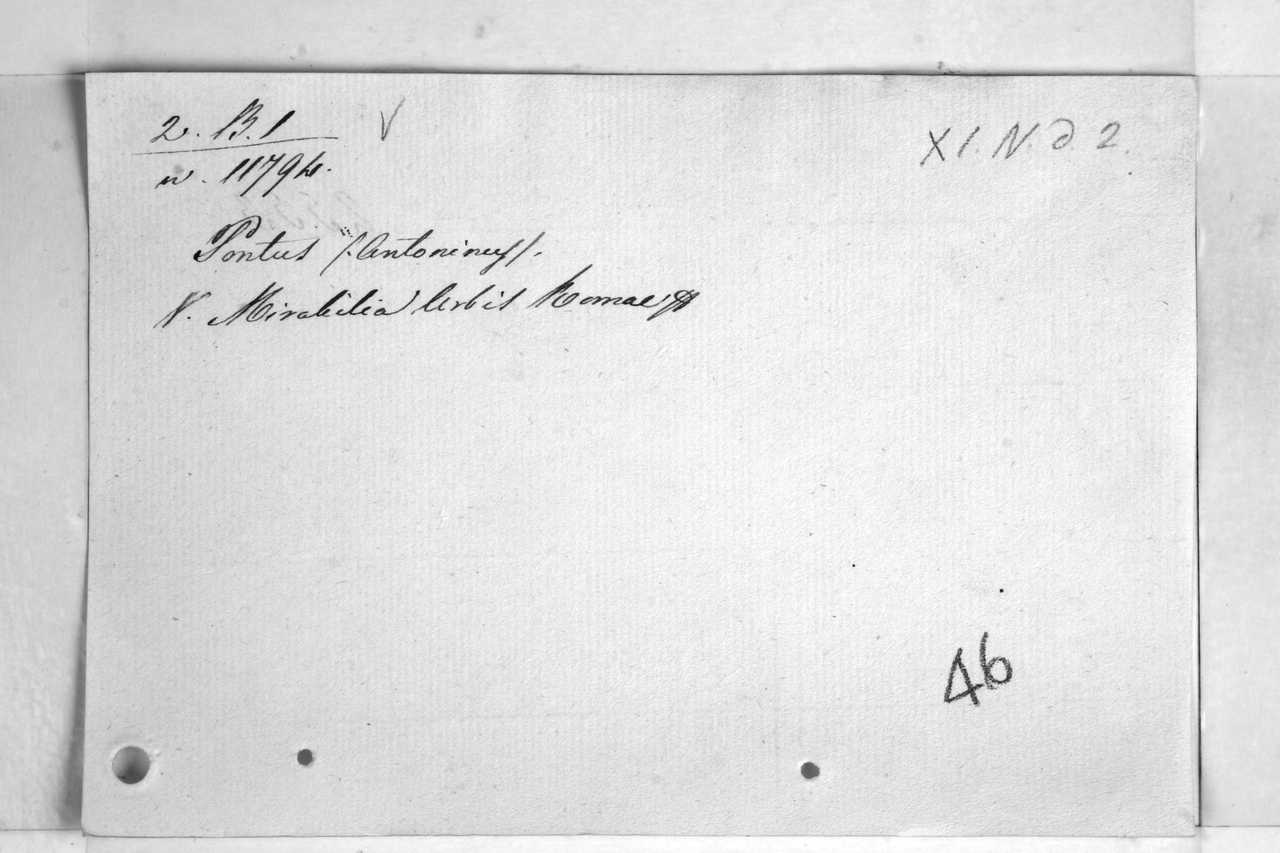 2. B. 1 V
n. 11794.
XI. N. d 2.
Pontus /:Antoninus/.
V. Mirabilia Urbis Romae
46